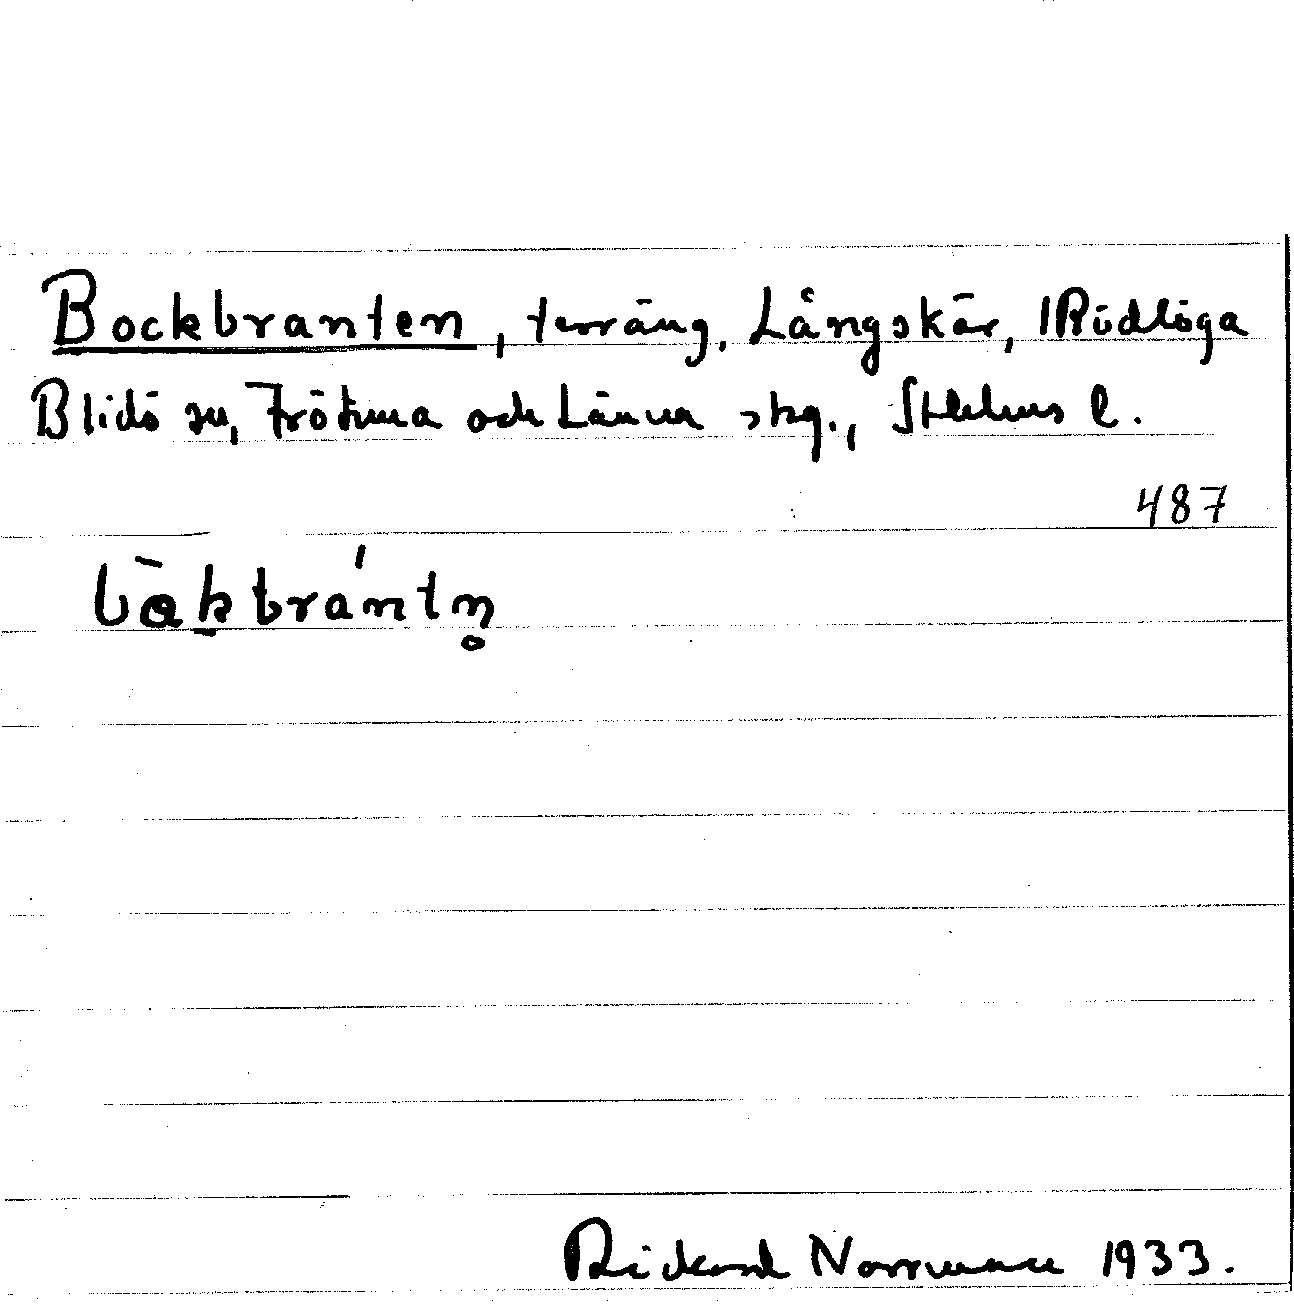 Bockbranten, terräng, Långskär, Rödlöga
Blidö sn, Frötuna och Länna skg., Sthlms l.
487
bȯ̀kbrántn̥
Rickard Norrman 1933.